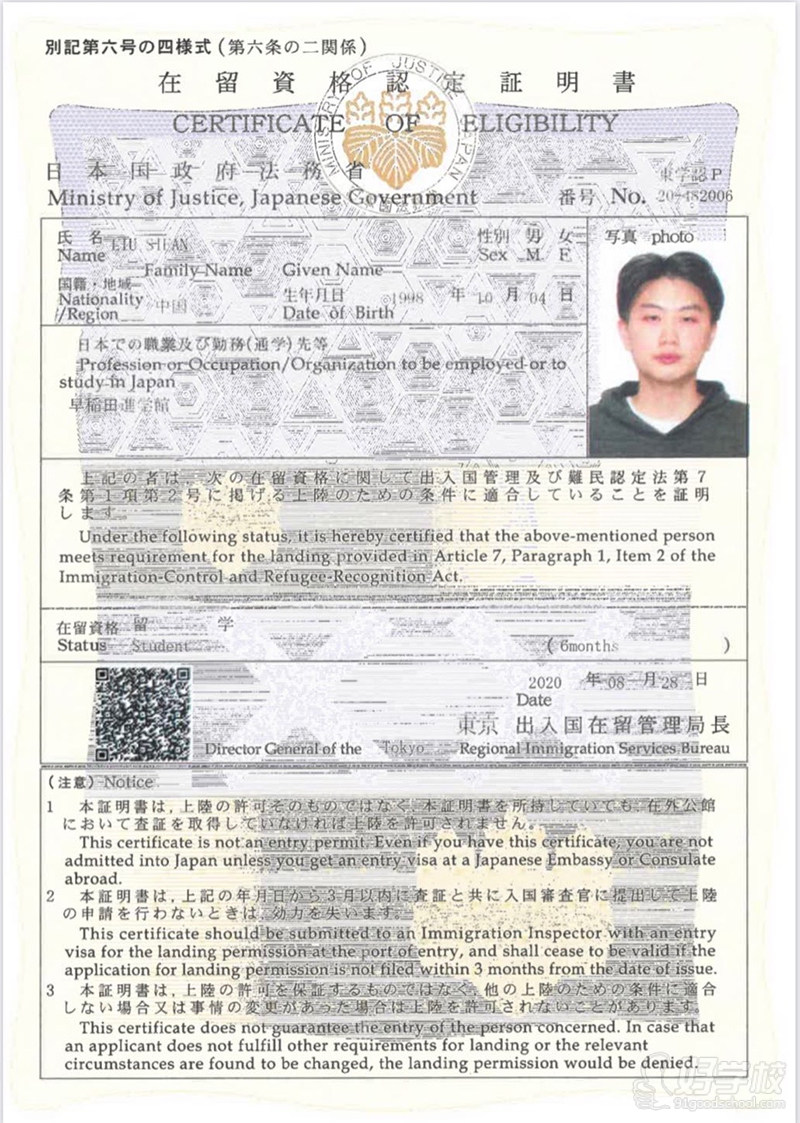 別記第六号の四様式(第六条の二関係)
在留資格認定証明書
CERTIFICATE OF ELIGIBILITY
MINISTRY OF JUSTICE JAPAN
日本国政府法務省
東学認P
Ministry of Justice, Japanese Government
番号 No. 20-482006
氏名
Name
LIU
Family Name Given Name
性別 男 女
Sex M F
写真 photo
国籍・地域
Nationality
/Region
中国
生年月日
Date of Birth
1998 年 10 月 04 日
日本での職業及び勤務(通学)先等
Profession or Occupation/Organization to be employed or to
study in Japan
早稲田進学館
上記の者は、次の在留資格に関して出入国管理及び難民認定法第7
条第1項第2号に掲げる上陸のための条件に適合していることを証明
します。
Under the following status, it is hereby certified that the above-mentioned person
meets requirement for the landing provided in Article 7, Paragraph 1, Item 2 of the
Immigration-Control and Refugee-Recognition Act.
在留資格 留学
Status Student
( 6months )
2020 年 08 月 28 日
Date
東京 出入国在留管理局長
Director General of the Tokyo Regional Immigration Services Bureau
(注意) Notice
1 本証明書は、上陸の許可そのものではなく、本証明書を所持していても、在外公館
において査証を取得していなければ上陸を許可されません。
This certificate is not an entry permit. Even if you have this certificate, you are not
admitted into Japan unless you get an entry visa at a Japanese Embassy or Consulate
abroad.
2 本証明書は、上記の年月日から3月以内に査証と共に入国審査官に提出して上陸
の申請を行わないときは、効力を失います。
This certificate should be submitted to an Immigration Inspector with an entry
visa for the landing permission at the port of entry, and shall cease to be valid if the
application for landing permission is not filed within 3 months from the date of issue.
3 本証明書は、上陸の許可を保証するものではなく、他の上陸のための条件に適合
しない場合又は事情の変更があった場合は上陸を許可されないことがあります。
This certificate does not guarantee the entry of the person concerned. In case that
an applicant does not fulfill other requirements for landing or the relevant
circumstances are found to be changed, the landing permission would be denied.
好学校
91goodschool.com